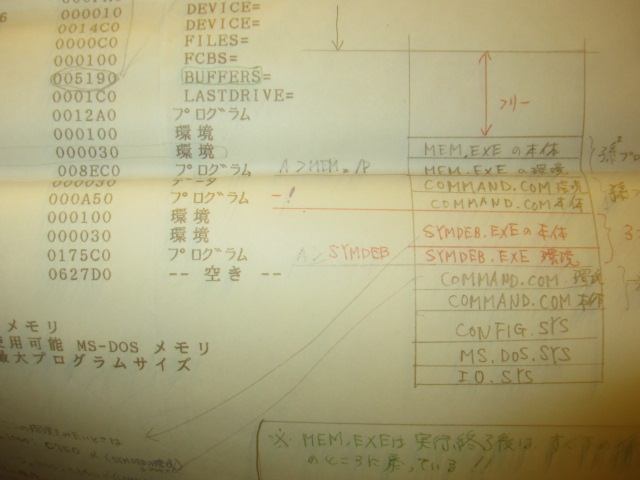 000010 DEVICE=
0014C0 DEVICE=
0000C0 FILES=
000100 FCBS=
005190 BUFFERS=
0001C0 LASTDRIVE=
0012A0 プログラム
000100 環境
000030 環境
008EC0 プログラム A>MEM /P
000030 データ
000A50 プログラム
000100 環境
000030 環境
0175C0 プログラム A>SYMDEB
0627D0 -- 空き --
メモリ
使用可能 MS-DOS メモリ
最大プログラムサイズ
フリー
MEM.EXE の本体
MEM.EXE の環境
COMMAND.COM 環境
COMMAND.COM 本体
SYMDEB.EXE の本体
SYMDEB.EXE 環境
COMMAND.COM 環境
COMMAND.COM 本体
CONFIG.SYS
MS.DOS.SYS
IO.SYS
※ MEM.EXEは 実行終了後は
のところに乗っている!!